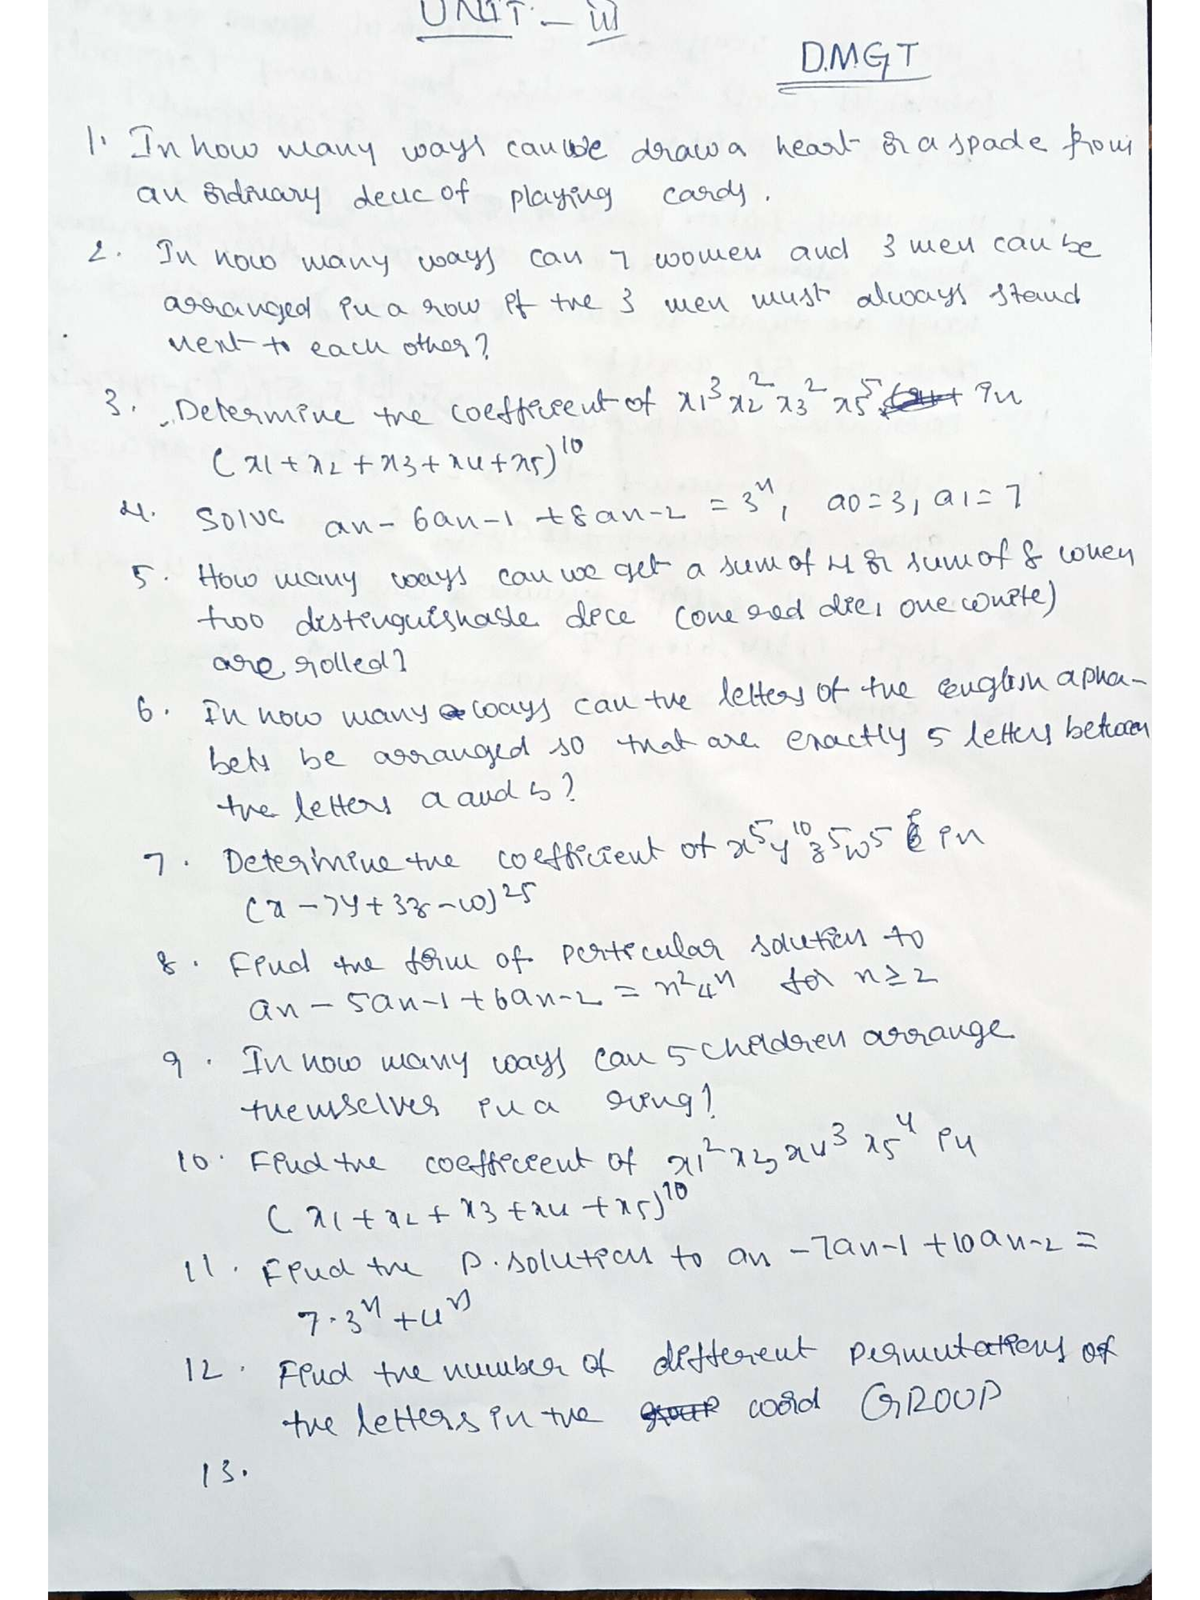 UNIT - III
D.M.G.T
1. In how many ways can we draw a heart or a spade from
an ordinary deck of playing cards.
2. In how many ways can 7 women and 3 men can be
arranged in a row if the 3 men must always stand
next to each other?
3. Determine the coefficient of x1³ x2² x3² x5⁵ in
(x1 + x2 + x3 + x4 + x5)¹⁰
4. Solve an - 6an-1 + 8an-2 = 3ⁿ, a0 = 3, a1 = 7
5. How many ways can we get a sum of 4 or sum of 8 when
two distinguishable dice (one red die, one white)
are rolled?
6. In how many ways can the letters of the english apha-
bets be arranged so that are exactly 5 letters between
the letters a and b?
7. Determine the coefficient of x⁵y¹⁰z⁵w⁵ in
(x - 7y + 3z - w)²⁵
8. Find the form of perticular solution to
an - 5an-1 + 6an-2 = n²4ⁿ for n ≥ 2
9. In how many ways can 5 children arrange
themselves in a ring?
10. Find the coefficient of x1² x3 x4³ x5⁴ in
(x1 + x2 + x3 + x4 + x5)¹⁰
11. Find the P. solution to an - 7an-1 + 10an-2 =
7·3ⁿ + 4ⁿ
12. Find the number of different permutations of
the letters in the word GROUP
13.